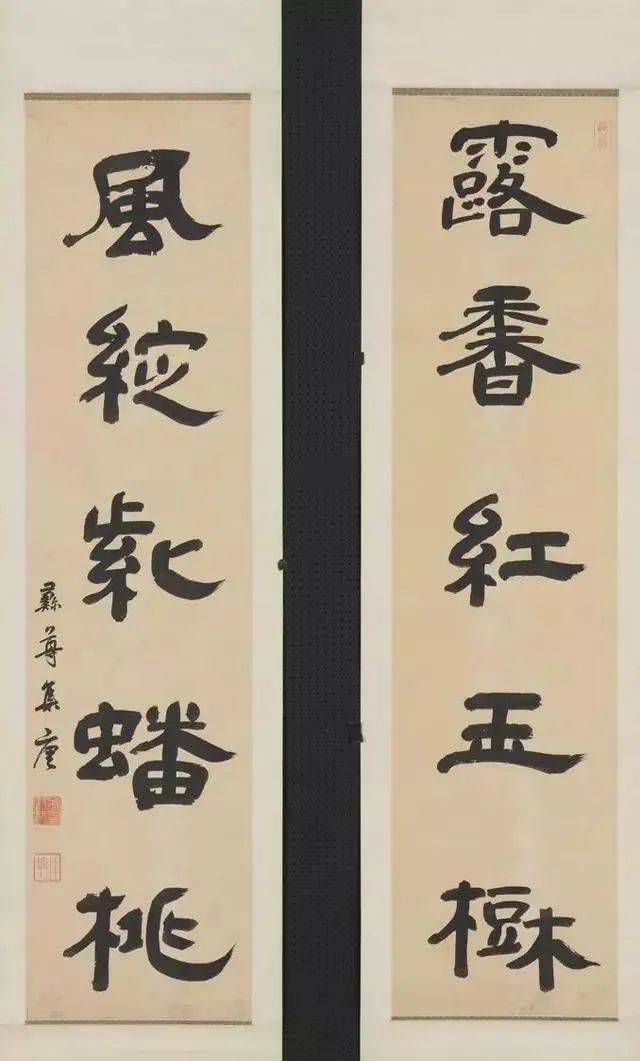 露香紅玉樹
風綻紫蟠桃
彝尊集唐